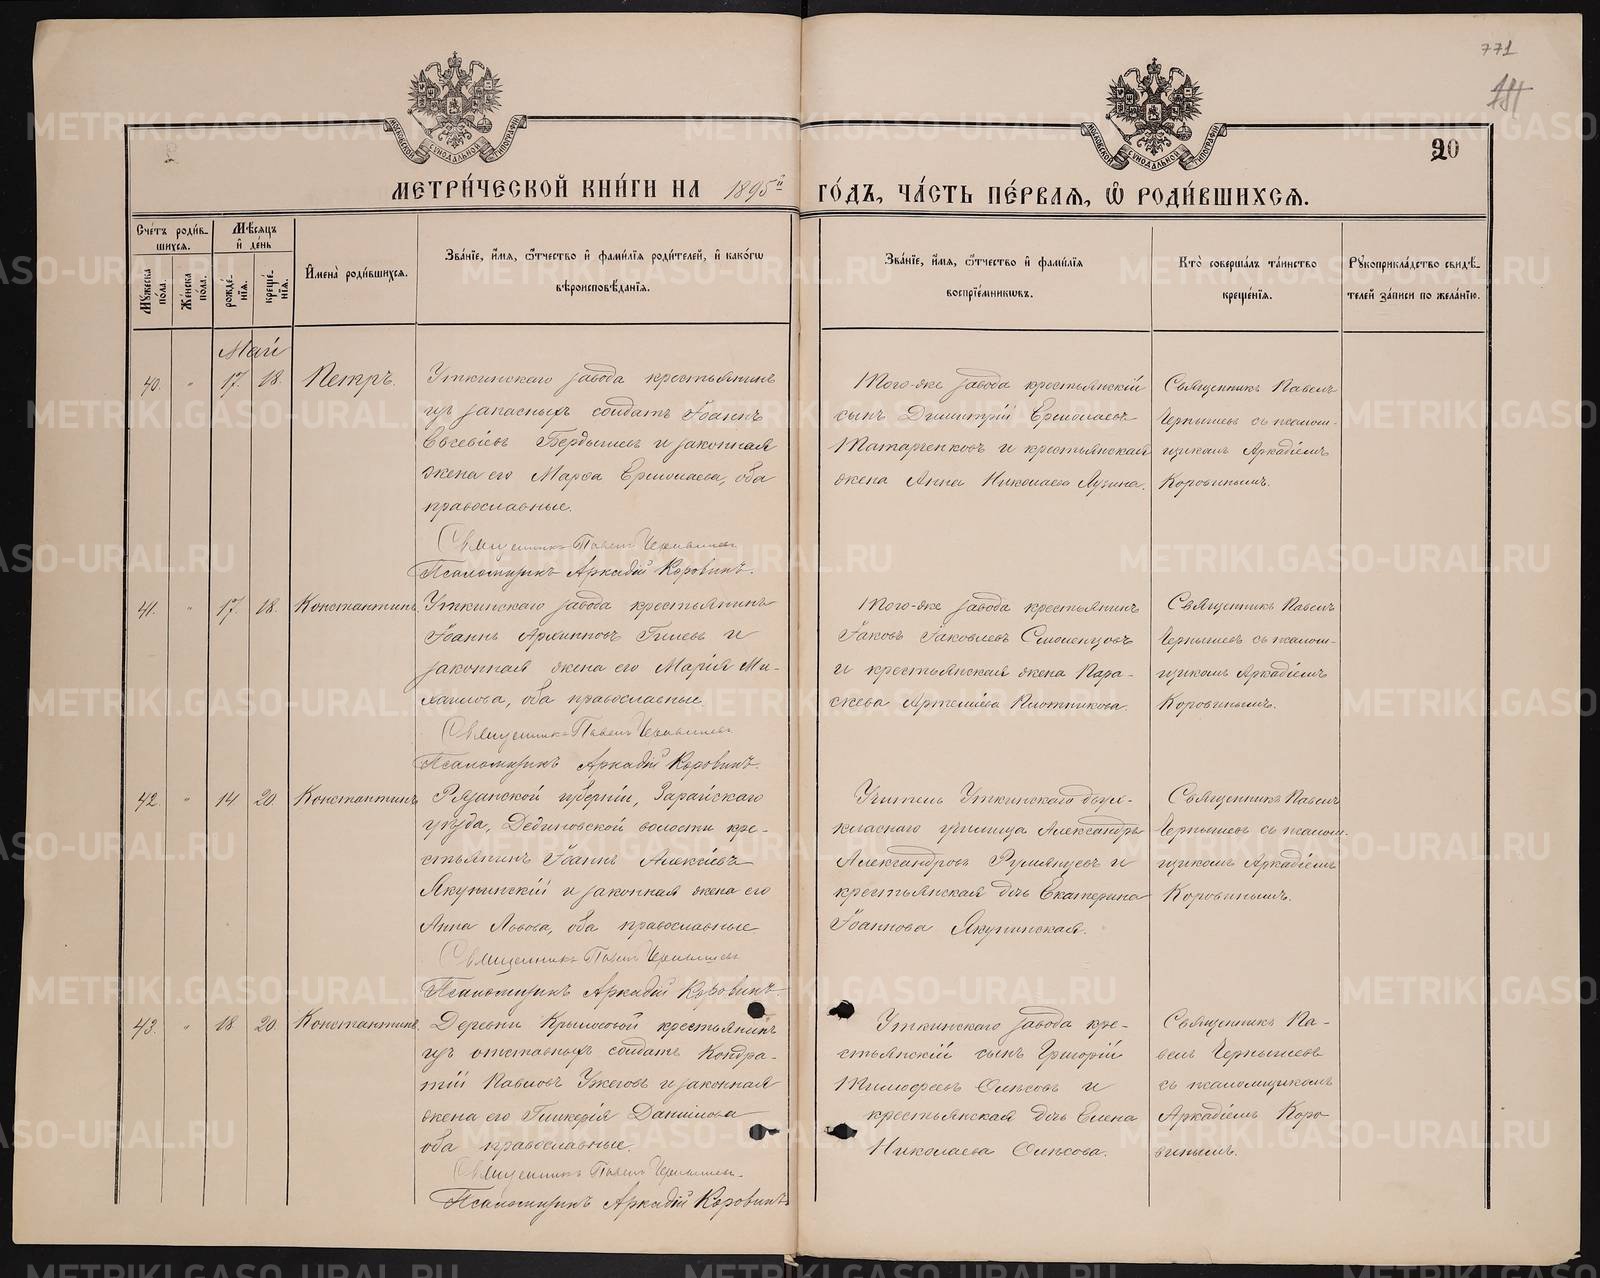 771
20
МОСКОВСКОЙ СУНОДАЛЬНОЙ ТИПОГРАФІИ
МОСКОВСКОЙ СУНОДАЛЬНОЙ ТИПОГРАФІИ
МЕТРИ́ЧЕСКОЙ КНИ́ГИ НА 1895й ГО́ДЪ, ЧА́СТЬ ПЕ́РВАЯ, Ѡ РОДИ́ВШИХСЯ.
Сче́тъ роди́в-
шихся.
Му́жеска по́ла.
Же́нска по́ла.
Мѣ́сяцъ и де́нь
рожде́-нія.
креще́-нія.
Имена̀ роди́вшихся.
Зва́ніе, и́мя, ѻ҆́тчество и҆ фами́лія роди́телей, и҆ како́гѡ
вѣроисповѣ́данія.
Зва́ніе, и́мя, ѻ҆́тчество и҆ фами́лія
воспріе́мниковъ.
Кто̀ соверша́лъ та́инство
креще́нія.
Рукоприкла́дство свидѣ́-
телей за́писи по жела́нію.
Май
40. " 17. 18. Петръ.
Уткинскаго завода крестьянинъ
изъ запасныхъ солдатъ Іоаннъ
Евсевіевъ Бердышевъ и законная
жена его Марѳа Ермолаева, оба
православные.
Священникъ Павелъ Чернышевъ
Псаломщикъ Аркадій Коровинъ.
Того-же завода крестьянскій
сынъ Димитрій Ермолаевъ
Татарченковъ и крестьянская
жена Анна Николаева Лузина.
Священникъ Павелъ
Чернышевъ съ псалом-
щикомъ Аркадіемъ
Коровинымъ.
41. " 17. 18. Константинъ.
Уткинскаго завода крестьянинъ
Іоаннъ Архиповъ Гилевъ и
законная жена его Марія Ми-
хаилова, оба православные
Священникъ Павелъ Чернышевъ
Псаломщикъ Аркадій Коровинъ.
Того-же завода крестьянинъ
Іаковъ Іаковлевъ Смоленцовъ
и крестьянская жена Пара-
скева Артеміева Плотникова.
Священникъ Павелъ
Чернышевъ съ псалом-
щикомъ Аркадіемъ
Коровинымъ.
42. " 14 20. Константинъ.
Рязанской губерніи, Зарайскаго
уѣзда, Дединовской волости кре-
стьянинъ Іоаннъ Алексѣевъ
Якунинскій и законная жена его
Анна Львова, оба православные
Священникъ Павелъ Чернышевъ
Псаломщикъ Аркадій Коровинъ.
Учитель Уткинскаго двух-
класнаго училища Александръ
Александровъ Румянцевъ и
крестьянская дочь Екатерина
Іоаннова Якунинская.
Священникъ Павелъ
Чернышевъ съ псалом-
щикомъ Аркадіемъ
Коровинымъ.
43. " 18 20. Константинъ.
Деревни Крылосовой крестьянинъ
изъ отставныхъ солдатъ Кондра-
тій Павловъ Ужеговъ и законная
жена его Гликерія Даниилова
оба православные.
Священникъ Павелъ Чернышевъ.
Псаломщикъ Аркадій Коровинъ
Уткинскаго завода кре-
стьянскій сынъ Григорій
Тимофеевъ Олѣсовъ и
крестьянская дочь Елена
Николаева Олѣсова.
Священникъ Па-
велъ Чернышевъ
съ псаломщикомъ
Аркадіемъ Коро-
винымъ.
METRIKI.GASO-URAL.RU